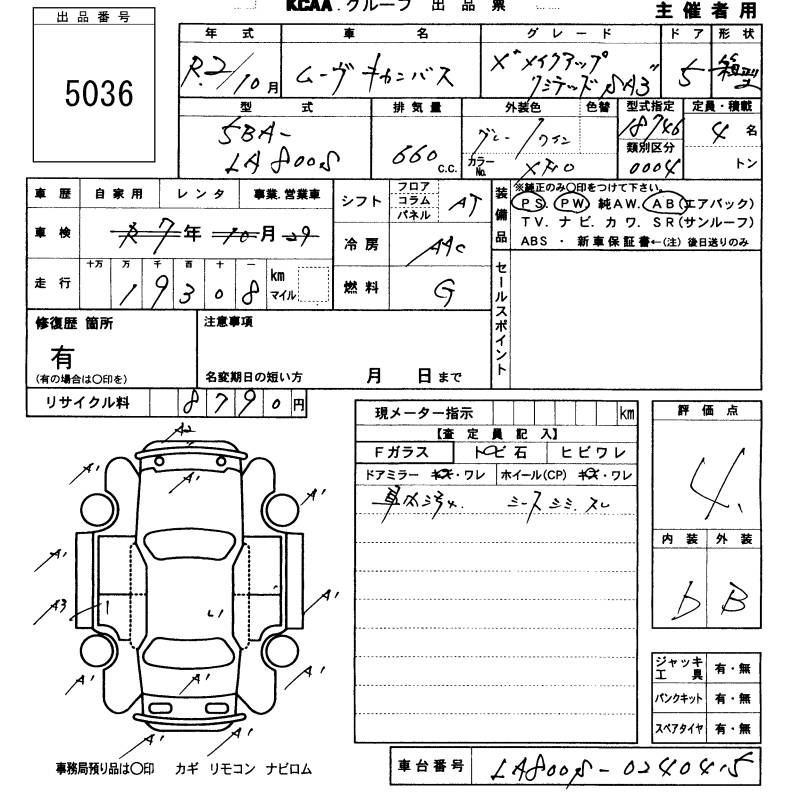 KCAA グループ 出品票
主催者用
出品番号
5036
年式 車名 グレード ドア 形状
R.2/10月 ムーヴキャンバス Xメイクアップ リミテッド SA3 5 箱型
型式 排気量 外装色 色替 型式指定 定員・積載
5BA-
LA800S 660 c.c. グレー/ワイン 18746 4名
カラーNo. 類別区分 0004 トン
車歴 自家用 レンタ 事業.営業車
車検 R7年10月29
走行 十万 万 千 百 十 一
19308 km マイル
シフト フロア コラム パネル AT
冷房 AAC
燃料 G
装備品 ※純正のみ〇印をつけて下さい。
PS. PW 純AW. AB(エアバック)
TV. ナビ. カワ. SR(サンルーフ)
ABS ・ 新車保証書←(注) 後日送りのみ
セールスポイント
修復歴 箇所
有
(有の場合は〇印を)
注意事項
名変期日の短い方 月 日まで
リサイクル料 8790円
現メーター指示 km
【査定員記入】
Fガラス トビ石 ヒビワレ
ドアミラー キズ・ワレ ホイール(CP) キズ・ワレ
車内汚れ シートシミ.スレ
評価点
4.
内装 外装
b B
ジャッキ工具 有・無
パンクキット 有・無
スペアタイヤ 有・無
A2
A1 A1 A1
A1 A1
A3 A1
A1 A1 A1
A1 A1
事務局預り品は〇印 カギ リモコン ナビロム
車台番号 LA800S-0240415